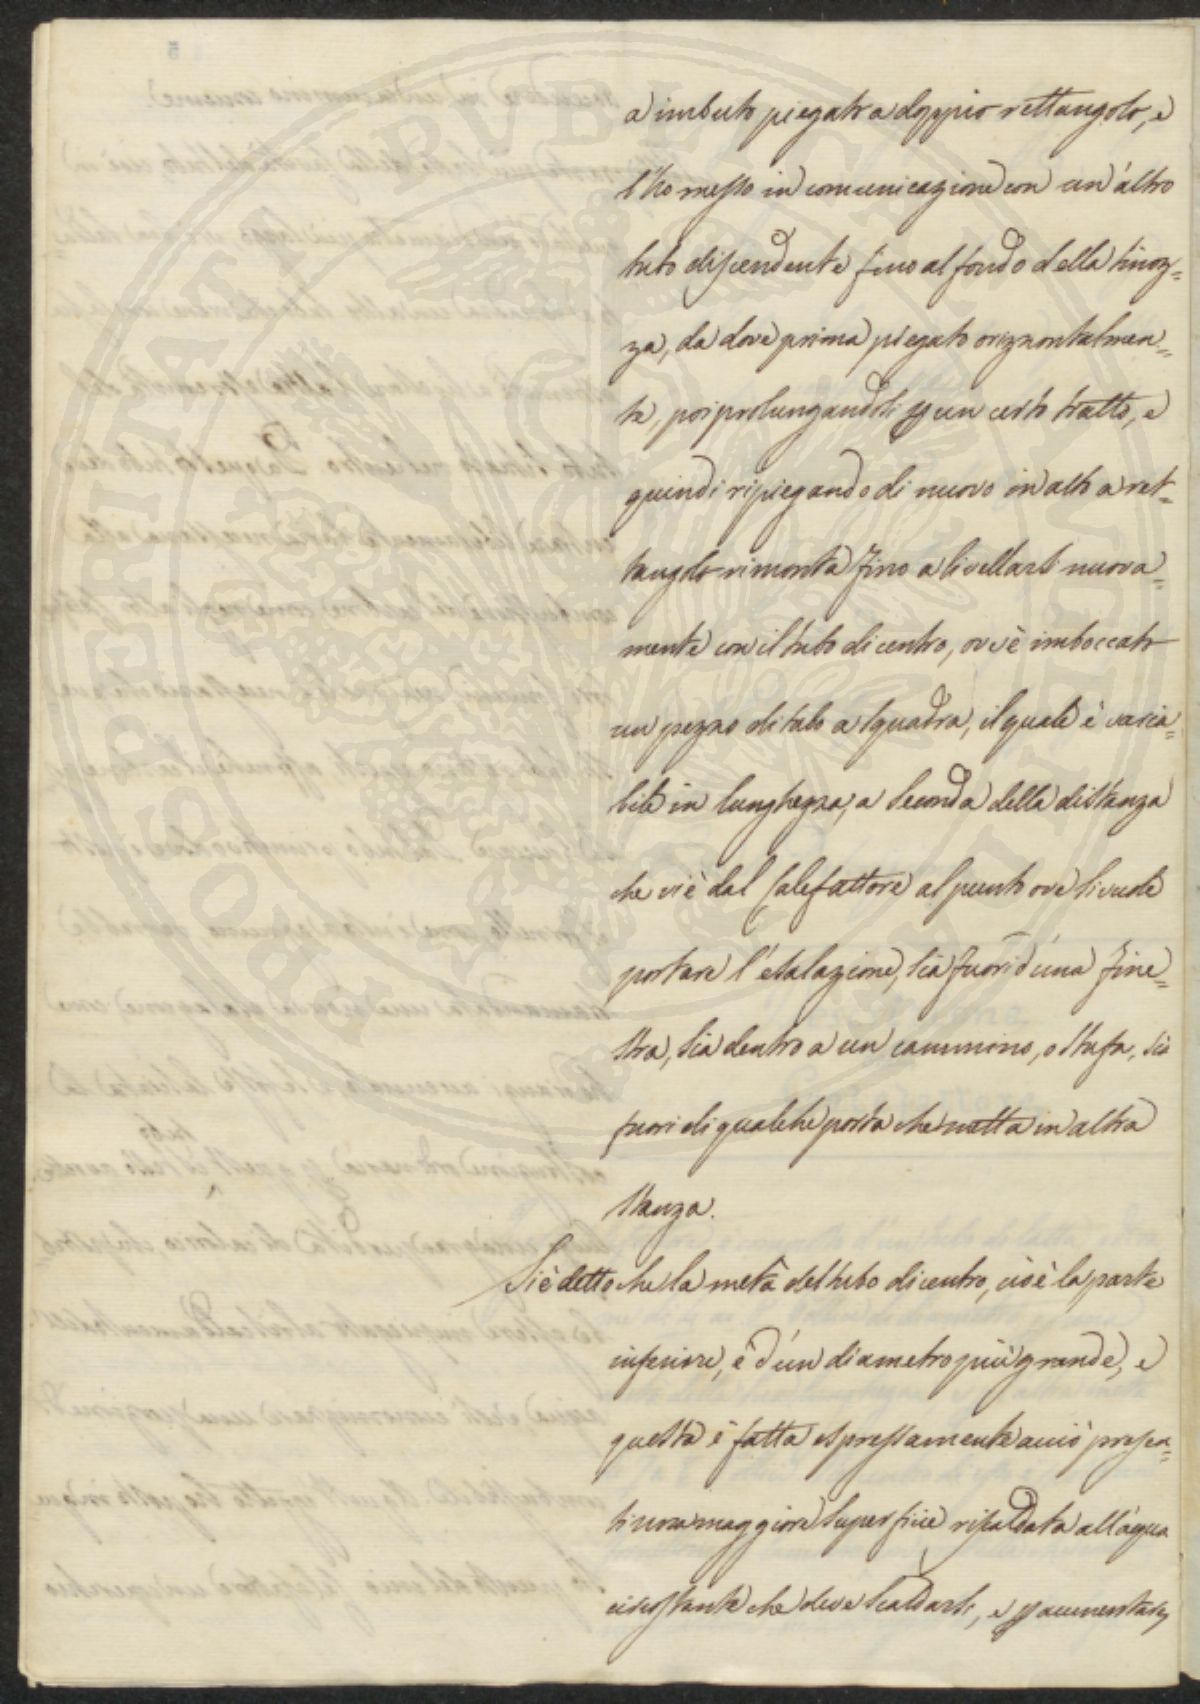 a imbuto piegato a doppio rettangolo, e
l'ho messo in comunicazione con un'altro
tubo discendente fino al fondo della tinoz=
za, da dove prima piegato orizzontalmen=
te, poi prolungandosi per un certo tratto, e
quindi ripiegando di nuovo in alto a ret=
tangolo rimonta fino a livellarsi nuova=
mente con il tubo di centro, ov'è imboccato
un pezzo di tubo a squadra, il quale è varia=
bile in lunghezza, a seconda della distanza
che vi è dal Calefattore al punto ove si vuole
portare l'esalazione, sia fuori d'una fine=
stra, sia dentro a un cammino, o stufa, sia
fuori di qualche porta che metta in altra
stanza.
Si è detto che la metà del tubo di centro, cioè la parte
inferiore, è d'un diametro più grande, e
questa è fatta espressamente acciò presen=
ti una maggiore superficie riscaldata all'aqua
circostante che deve scaldarsi, e per aumentare